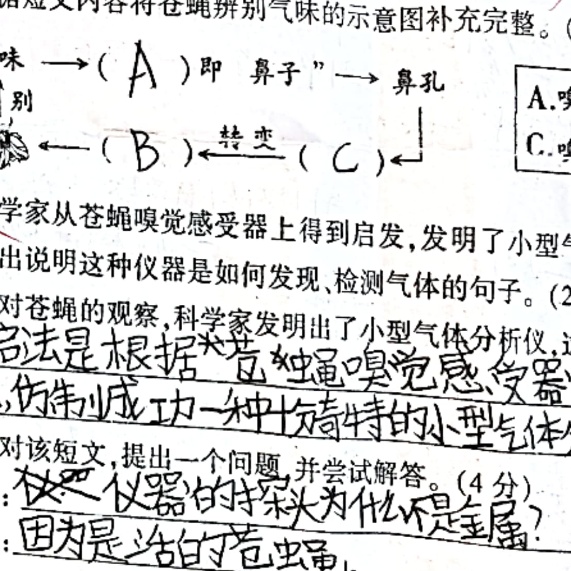 据短文内容将苍蝇辨别气味的示意图补充完整。(
味 → ( A ) 即 鼻子” → 鼻孔
别
A.嗅
← ( B ) ← 转变 ( C ) ←
C.嗅
学家从苍蝇嗅觉感受器上得到启发,发明了小型气
出说明这种仪器是如何发现、检测气体的句子。(2
对苍蝇的观察,科学家发明出了小型气体分析仪,这
法是根据苍蝇嗅觉感受器
,仿制成功一种十分奇特的小型气体分
对该短文,提出一个问题,并尝试解答。(4分)
: 仪器的探头为什么不是金属?
: 因为是活的苍蝇。